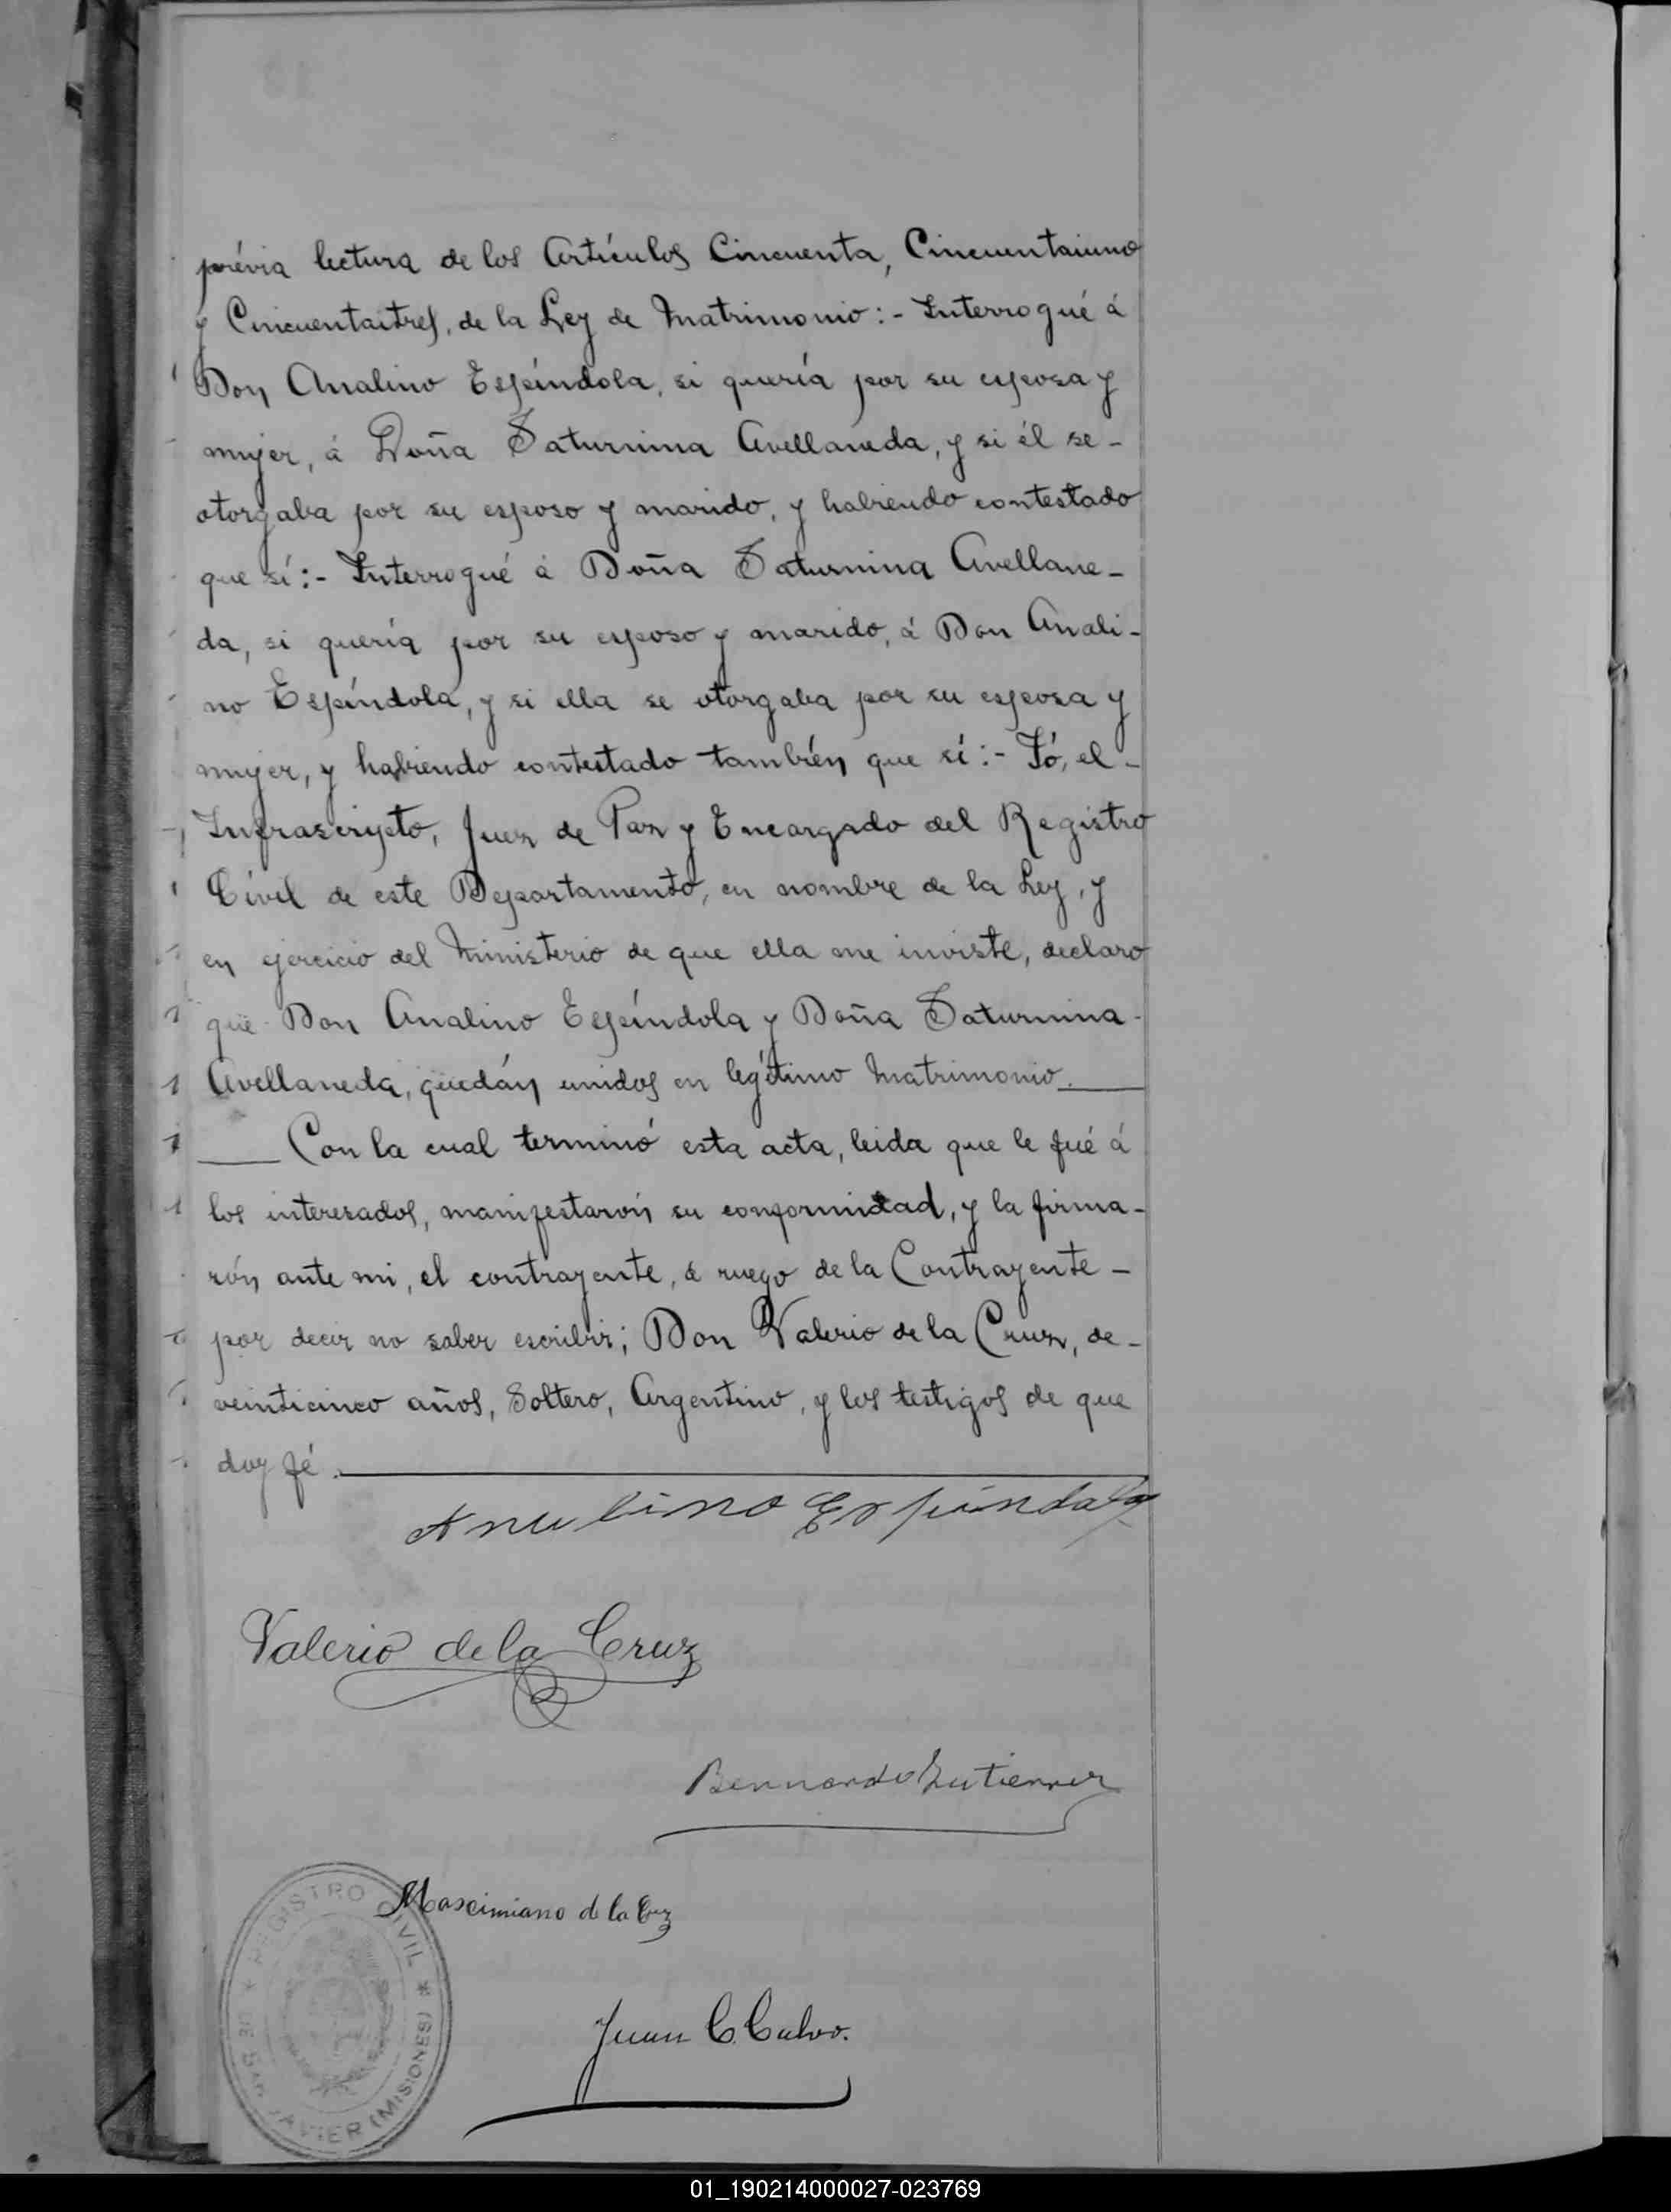 prévia lectura de los Artículos Cincuenta, Cincuentaiuno
y Cincuentaitres, de la Ley de Matrimonio:- Interrogué á
Don Analino Espíndola, si quería por su esposa y
mujer, á Doña Saturnina Avellaneda, y si él se-
otorgaba por su esposo y marido, y habiendo contestado
que sí:- Interrogué á Doña Saturnina Avellane-
da, si quería por su esposo y marido, á Don Anali-
no Espíndola, y si ella se otorgaba por su esposa y
mujer, y habiendo contestado tambien que sí:- Yó, el-
Infrascripto, Juez de Paz y Encargado del Registro
Civil de este Departamento, en nombre de la Ley, y
en ejercicio del Ministerio de que ella me inviste, declaro
que Don Analino Espíndola y Doña Saturnina-
Avellaneda, quedán unidos en legítimo Matrimonio.
Con la cual terminó esta acta, leida que le fué á
los interesados, manifestarón su conformidad, y la firma-
rón ante mi, el contrayente, á ruego de la Contrayente-
por decir no saber escribir; Don Valerio de la Cruz, de-
veinticinco años, Soltero, Argentino, y los testigos de que
doy fé.
Analino Espíndola
Valerio de la Cruz
Bernardo Gutierrez
Mascimiano de la Cruz
Juan C. Calvo.
* REGISTRO CIVIL *
DE SAN JAVIER (MISIONES)
01_190214000027-023769